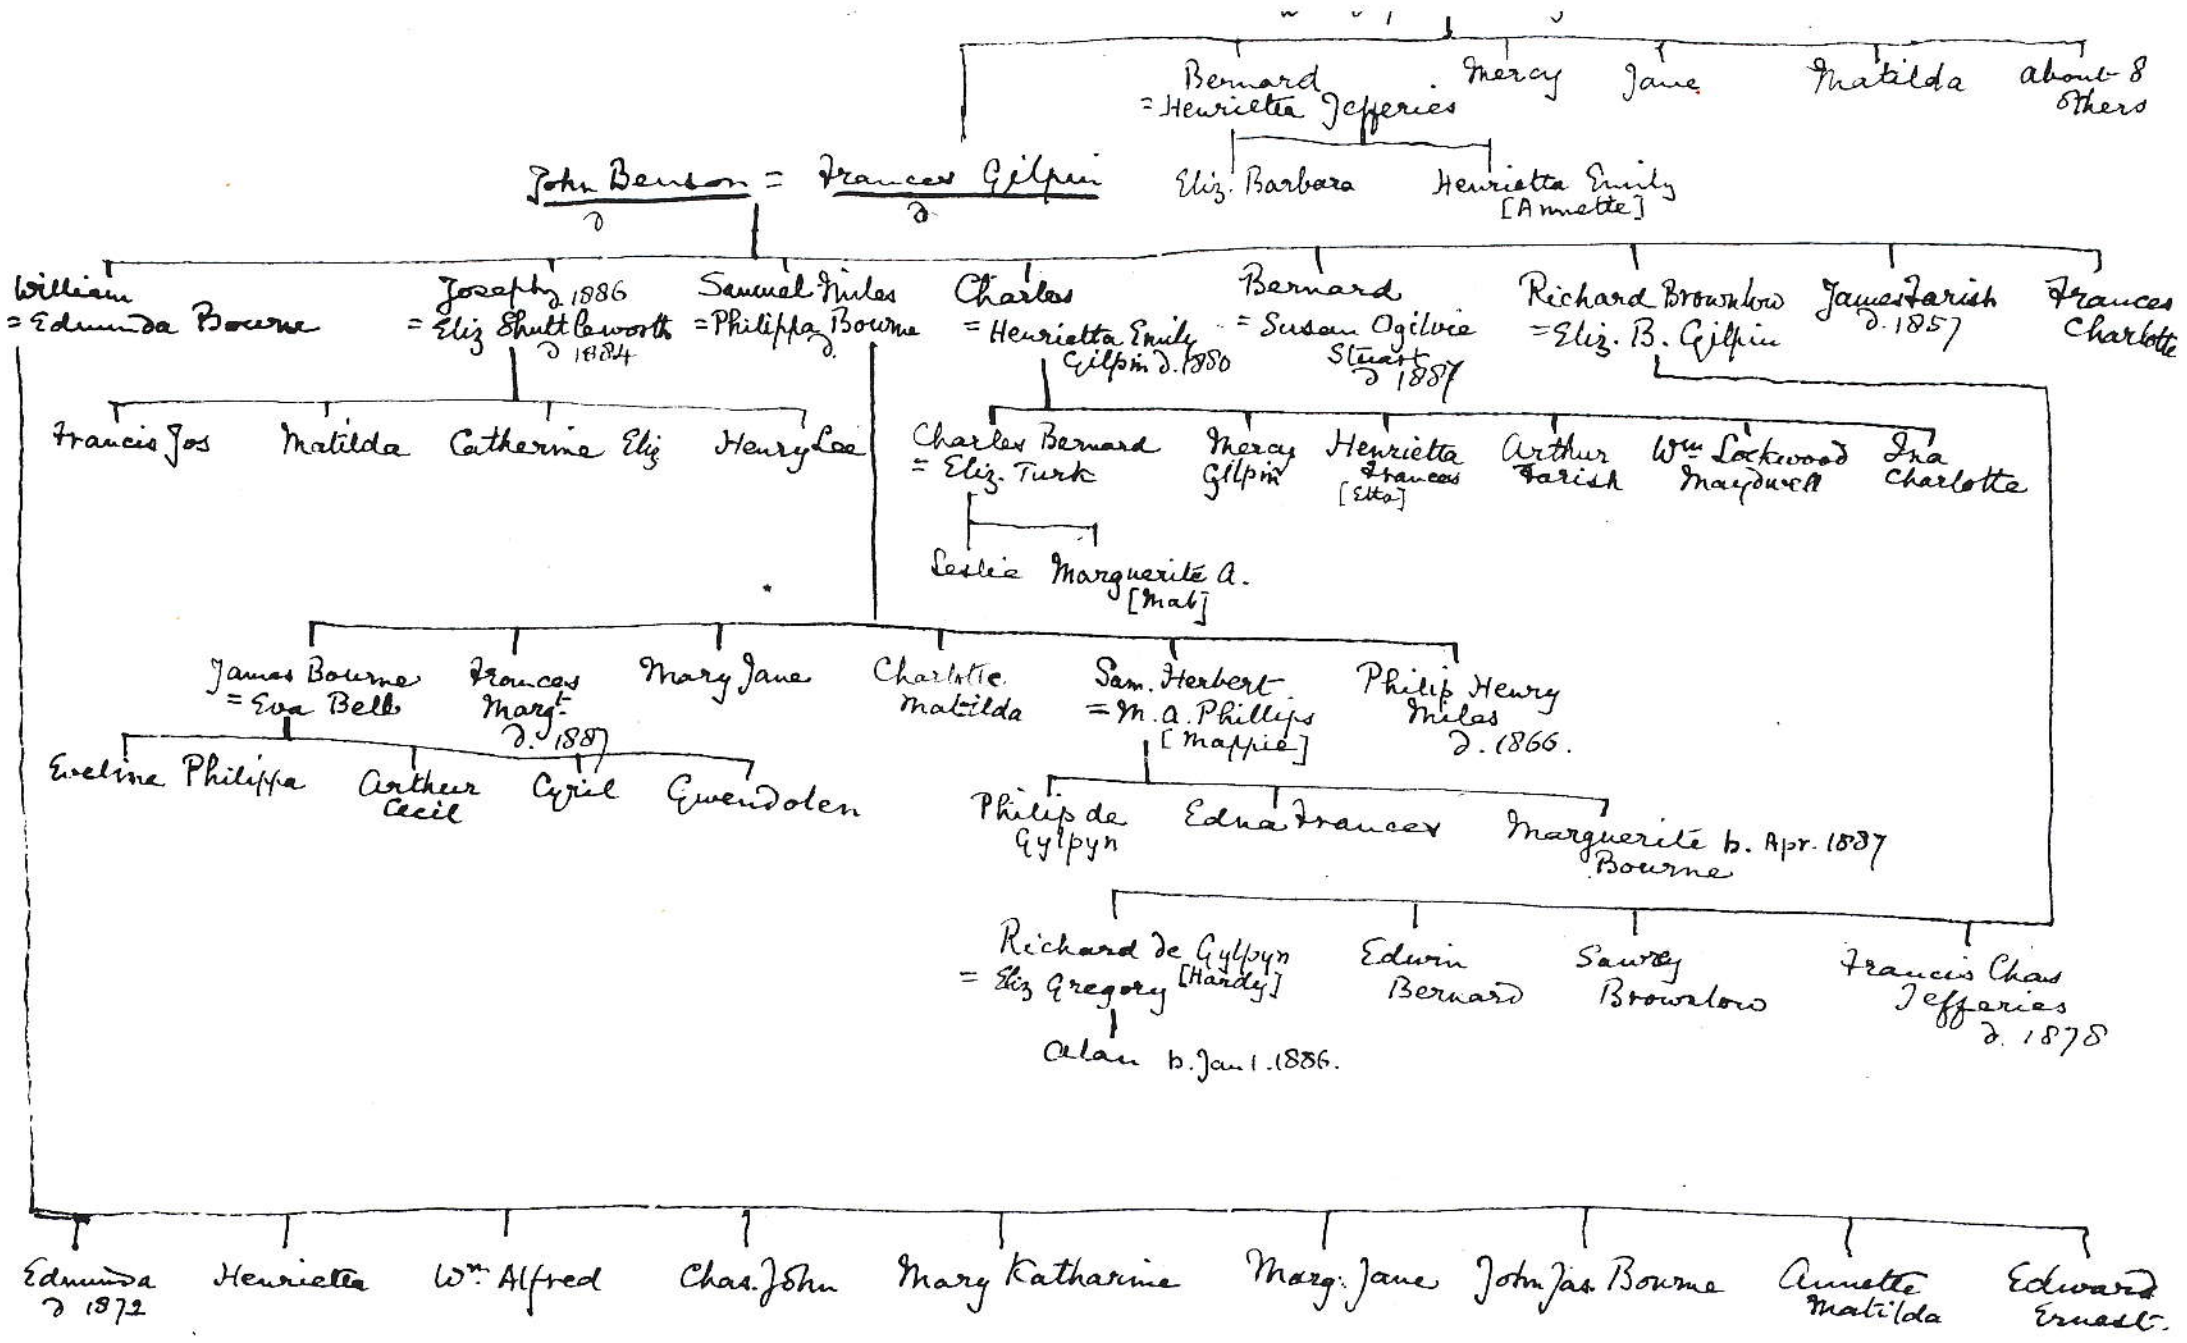 Bernard
= Henrietta Jefferies
Mercy
Jane
Matilda
about 8
others
John Benson = Frances Gilpin
d
d
Eliz. Barbara
Henrietta Emily
[Annette]
William
= Edmunda Bourne
Joseph d 1886
= Eliz Shuttleworth
d 1884
Samuel Miles
= Philippa Bourne
d.
Charles
= Henrietta Emily
Gilpin d. 1880
Bernard
= Susan Ogilvie
Stuart
d 1887
Richard Brownlow
= Eliz. B. Gilpin
James Farish
d. 1857
Frances
Charlotte
Francis Jos
Matilda
Catherine Eliz
Henry Lee
Charles Bernard
= Eliz. Turk
Mercy
Gilpin
Henrietta
Frances
[Etta]
Arthur
Farish
Wm Lockwood
Maydwell
Ina
Charlotte
Leslie
Marguerite A.
[Mab]
James Bourne
= Eva Bell
Frances
Margt.
d. 1887
Mary Jane
Charlotte
Matilda
Sam. Herbert
= M. A. Phillips
[Mappie]
Philip Henry
Miles
d. 1866.
Eveline Philippa
Arthur
Cecil
Cyril
Gwendolen
Philip de
Gylpyn
Edna Frances
Marguerite b. Apr. 1887
Bourne
Richard de Gylpyn
= Eliz Gregory [Hardy]
Edwin
Bernard
Sawrey
Brownlow
Francis Chas
Jefferies
d. 1878
Alan b. Jan 1. 1886.
Edmunda
d 1872
Henrietta
Wm. Alfred
Chas. John
Mary Katharine
Marg. Jane
John Jas. Bourne
Annette
Matilda
Edward
Ernest.